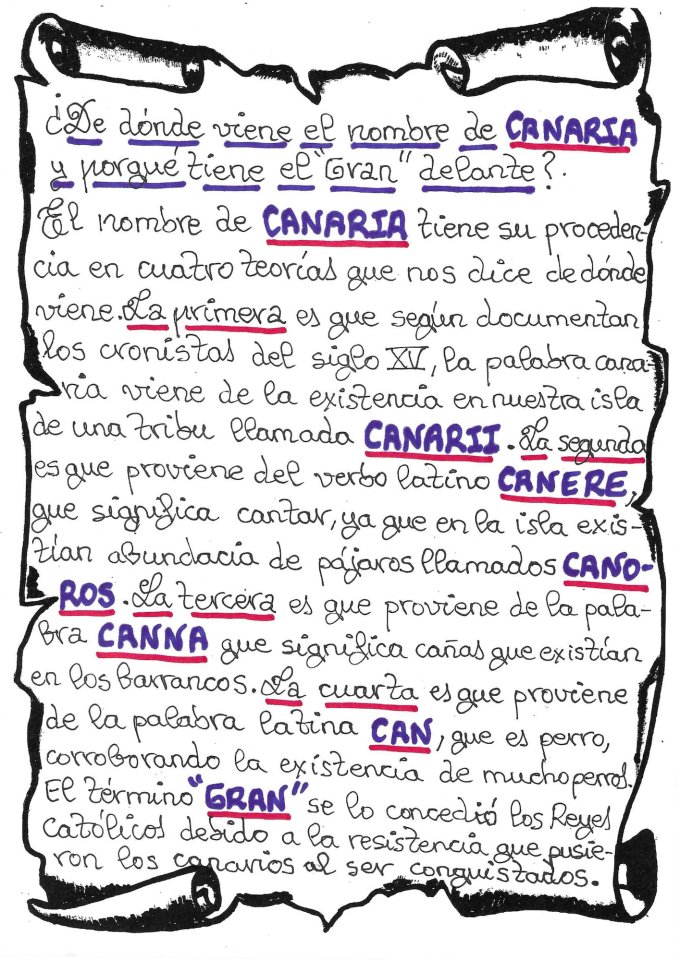 ¿De dónde viene el nombre de CANARIA
y porqué tiene el "Gran" delante?.
El nombre de CANARIA tiene su proceden-
cia en cuatro teorías que nos dice de dónde
viene. La primera es que según documentan
los cronistas del siglo XV, la palabra cana-
ria viene de la existencia en nuestra isla
de una tribu llamada CANARII. La segunda
es que proviene del verbo latino CANERE,
que significa cantar, ya que en la isla exis-
tían abundacia de pájaros llamados CANO-
ROS. La tercera es que proviene de la pala-
bra CANNA que significa cañas que existían
en los barrancos. La cuarta es que proviene
de la palabra latina CAN, que es perro,
corroborando la existencia de mucho perros.
El término "GRAN" se lo concedió los Reyes
Católicos debido a la resistencia que pusie-
ron los canarios al ser conquistados.